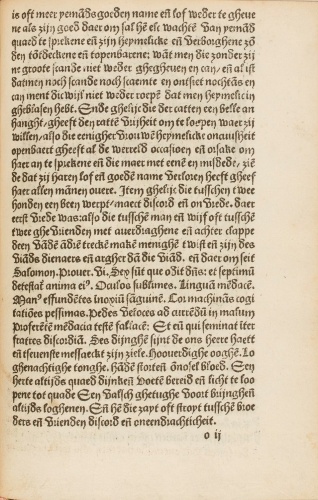 is oft meer pemāds goeden name eñ lof weder te gheue
ne als zijn goed daer om sal hē elc wachtē van yemād
quaed te sprekene eñ zijn heymelicke eñ verborghene zō
den tōtdeckene eñ topenbarene; wāt men die zonder zij
ne groote scande niet weder ghegheuen en can, eñ al ist
datmen noch scande noch scaemte en ontsiet nochtās en
can ment die wijf niet weder roepē dat men heymelic in
gheblasen hebt. Ende ghelijc die der catten een belle an
hanght, gheeft den cattē vrijheit om te loopen waer zij
willen, also die eenigher vrouwē heymelicke oncuusheit
openbaert gheeft al de werreld occasioen eñ orsake om
haer an te sprekene eñ die maer met eenē en misdede, ziē
de dat zij haren lof eñ goedē name verloren heeft gheef
haer allen mānen ouere. Item ghelijc die tusschen twee
honden een been werpt, maect discord eñ on vrede. daer
eerst vrede was: also die tusschē man eñ wijf oft tusschē
twee ghevrienden met auerdraghene eñ achter clappe
deen vādē ādrē trecke makē menighē twist eñ zijn des
viāds dienaers eñ argher dā die viād. eñ daer om seit
Salomon. Prouer. vi. Sex sūt que odit dñs: et septimū
detestat anima ei⁹. Oculos sublimes. Linguam mēdacē.
Man⁹ effundētes inoxiū sāguinē. Cor machinās cogi
tatiōes pessimas. Pedes veloces ad currēdū in malum
Proferētē mēdacia testē fallacē: Et eū qui seminat iter
fratres discordiā. Ses dijnghē sijnt de ons heere haett
eñ tseuenste messaectt zijn ziele. Hoouerdighe ooghē. Lo
ghenachtighe tonghe. hādē stortēn ōnosel bloed. Een
herte altijds quaed dijnkēn voetē bereid eñ licht te loo
pene tot quade Een valsch ghetughe voort brijnghēn
altijds loghenen. Eñ hē die zayt oft stropt tusschē broe
ders eñ vrienden discord eñ oneendrachticheit.
o ij